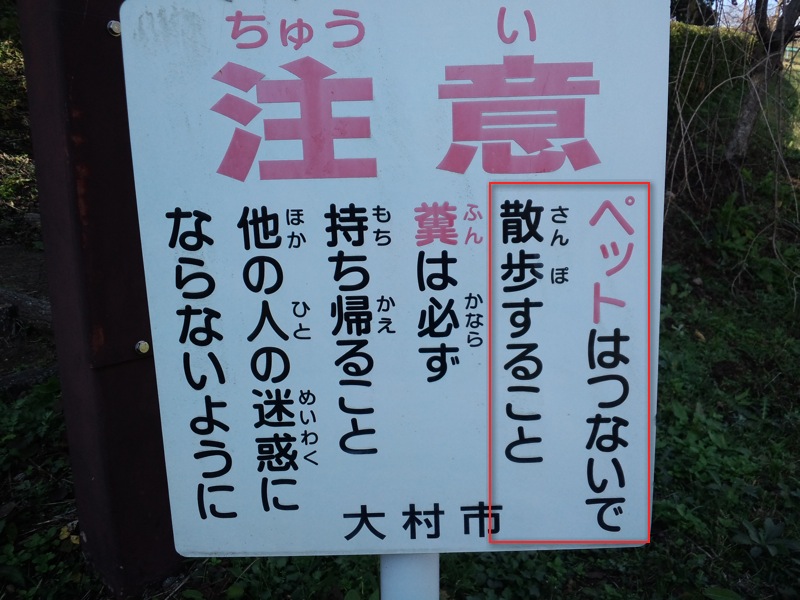 注意
ちゅうい
ペットはつないで
散歩すること
さんぽ
糞は必ず
ふん かなら
持ち帰ること
もち かえ
他の人の迷惑に
ほか ひと めいわく
ならないように
大村市